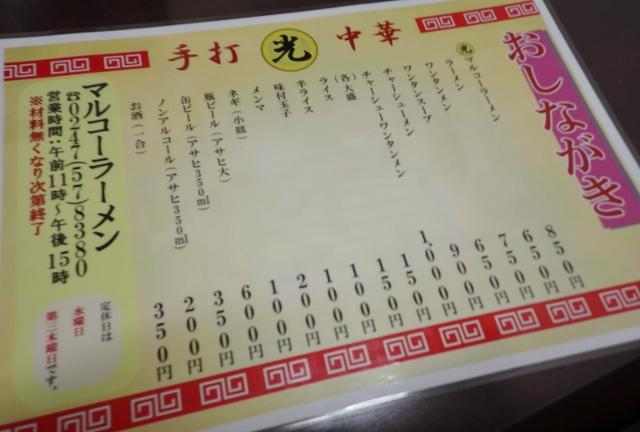 手打 光 中華
おしながき
光 マルコーラーメン 850円
ラーメン 650円
ワンタンメン 750円
ワンタンスープ 650円
チャーシューメン 900円
チャーシューワンタンメン 1,000円
(各)大盛 150円
ライス 150円
半ライス 100円
味付玉子 100円
メンマ 200円
ネギ(小皿) 100円
瓶ビール(アサヒ大) 600円
缶ビール(アサヒ350ml) 350円
ノンアルコール(アサヒ350ml) 200円
お酒(一合) 350円
マルコーラーメン
☎0247(57)8380
営業時間:午前11時〜午後15時
※材料無くなり次第終了
定休日は
水曜日
第三木曜日です。